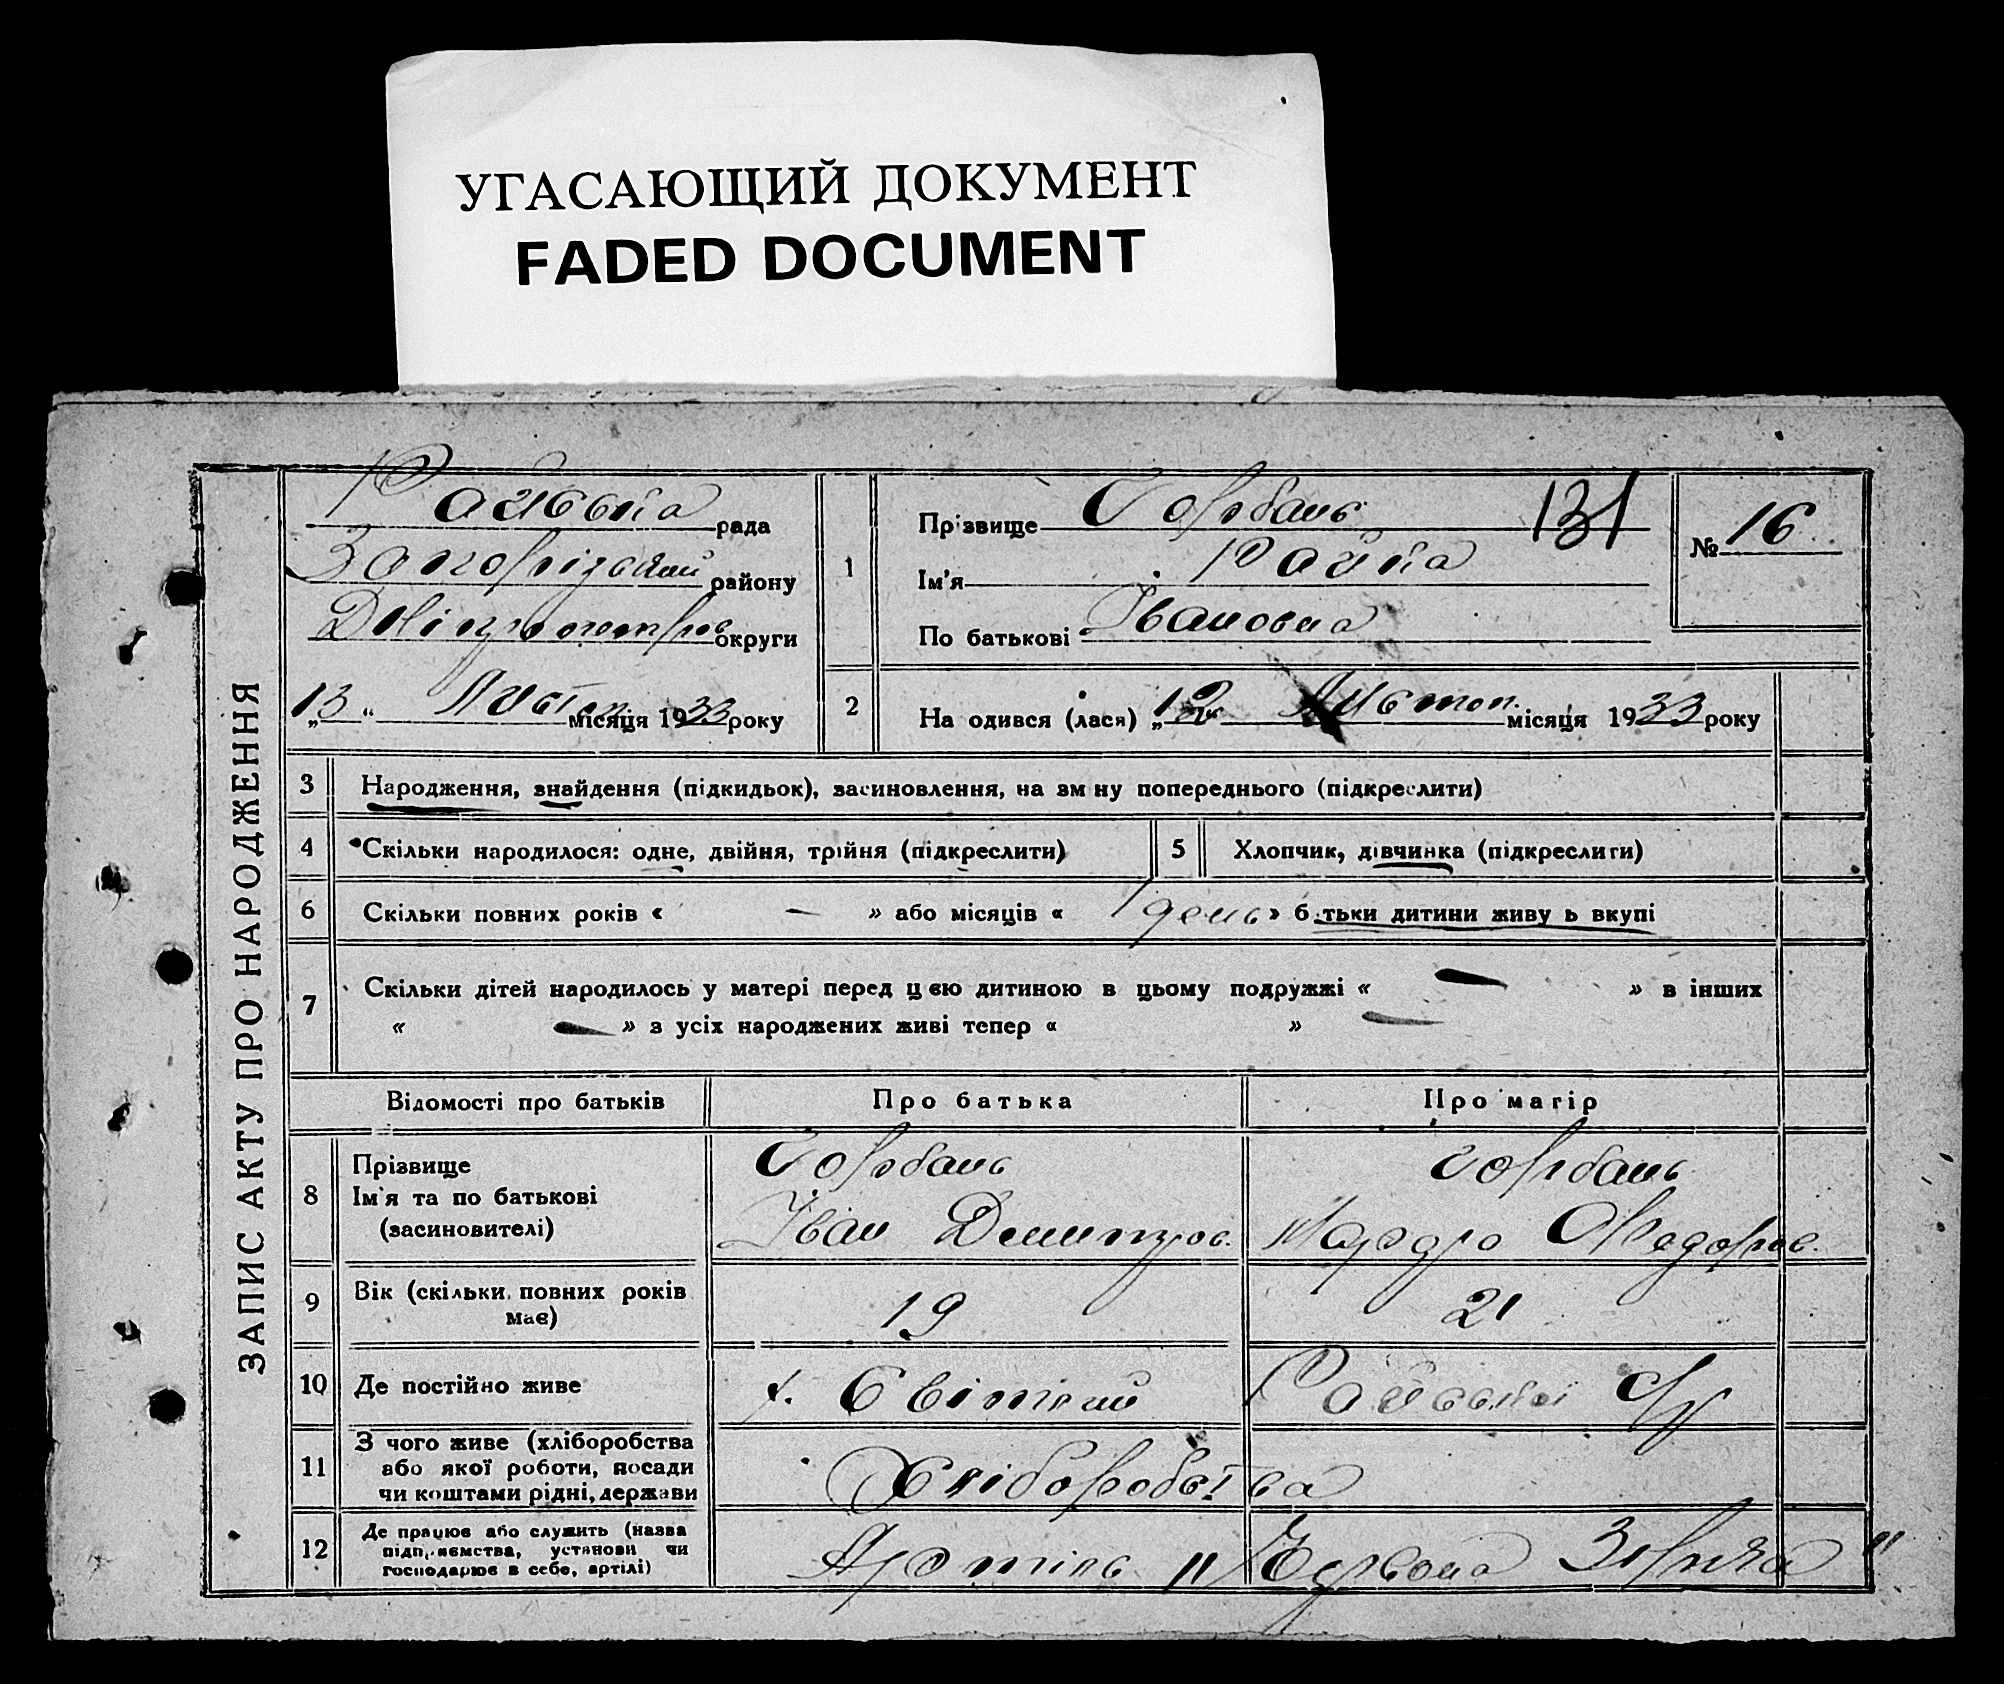 УГАСАЮЩИЙ ДОКУМЕНТ
FADED DOCUMENT
ЗАПИС АКТУ ПРО НАРОДЖЕННЯ
Райська рада
Запорізький району
Дніпропетров округи
„13“ Листоп місяця 1933 року
1
Прізвище Горбань 131
Ім'я Райка
По батькові Івановна
№ 16
2 На одився (лася) „12 Листоп. місяця 1933 року
3 Народження, знайдення (підкидьок), засиновлення, на зм ну попереднього (підкреслити)
4 Скільки народилося: одне, двійня, трійня (підкреслити) 5 Хлопчик, дівчинка (підкреслити)
6 Скільки повних років « — » або місяців « 1 день » б тьки дитини живу ь вкупі
7 Скільки дітей народилось у матері перед цею дитиною в цьому подружжі « — » в інших
« — » з усіх народжених живі тепер « » —
Відомості про батьків Про батька Про матір
8 Прізвище Горбань Горбань
Ім'я та по батькові Іван Дмитров.
(засиновителі)
9 Вік (скільки повних років має) 19 21
10 Де постійно живе Райської с/р
11 З чого живе (хліборобства Хліборобства
або якої роботи, посади
чи коштами рідні, держави
12 Де працює або служить (назва Артіль "Червона Зірка"
підприємства, установи чи
господарює в себе, артілі)